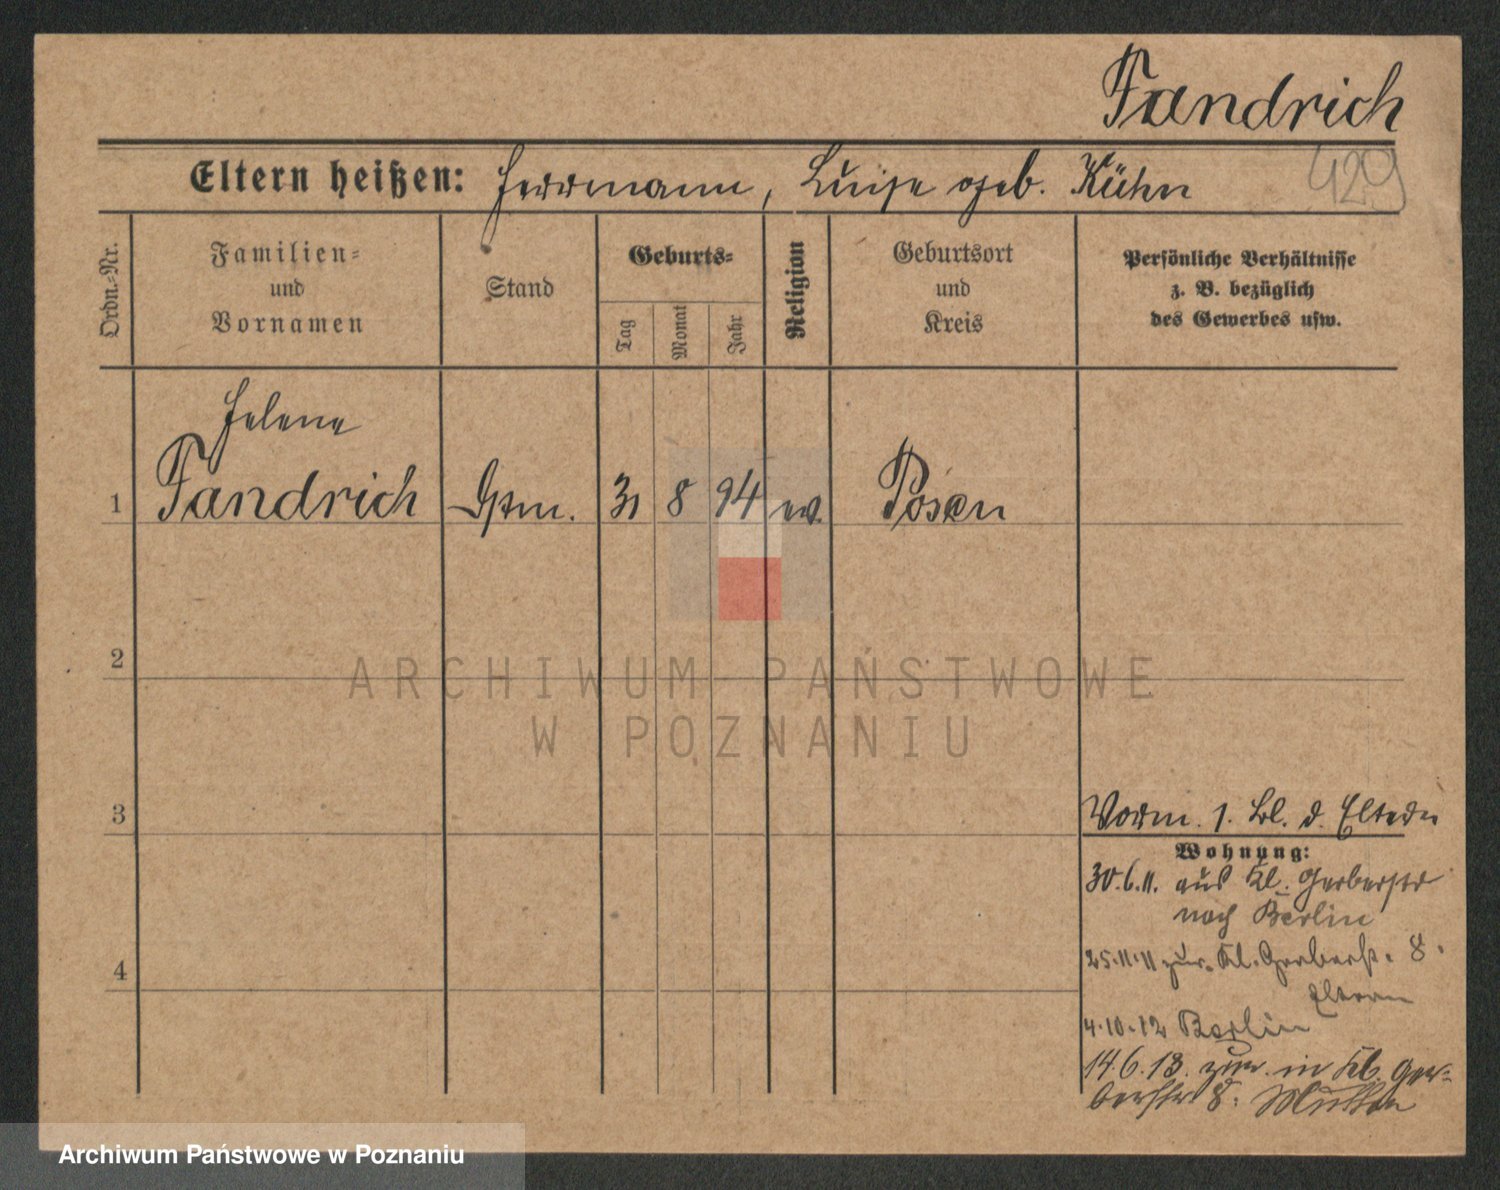 Fandrich
429
Eltern heißen: Herrmann, Luise geb. Kühn
Ordn.-Nr.
Familien-
und
Vornamen
Stand
Geburts-
Tag
Monat
Jahr
Religion
Geburtsort
und
Kreis
Persönliche Verhältnisse
z. B. bezüglich
des Gewerbes usw.
1
Helene
Fandrich
31
8
94
ev.
Posen
2
3
4
ARCHIWUM PAŃSTWOWE
W POZNANIU
Verm. s. Bl. d. Eltern
Wohnung:
30.6.11. aus Kl. Gerberstr
nach Berlin
25.11.11 zur. Kl. Gerberst. 8.
Eltern
4.10.12 Berlin
14.6.13. zur. in Kl. Ger-
berstr 8. Mutter
Archiwum Państwowe w Poznaniu